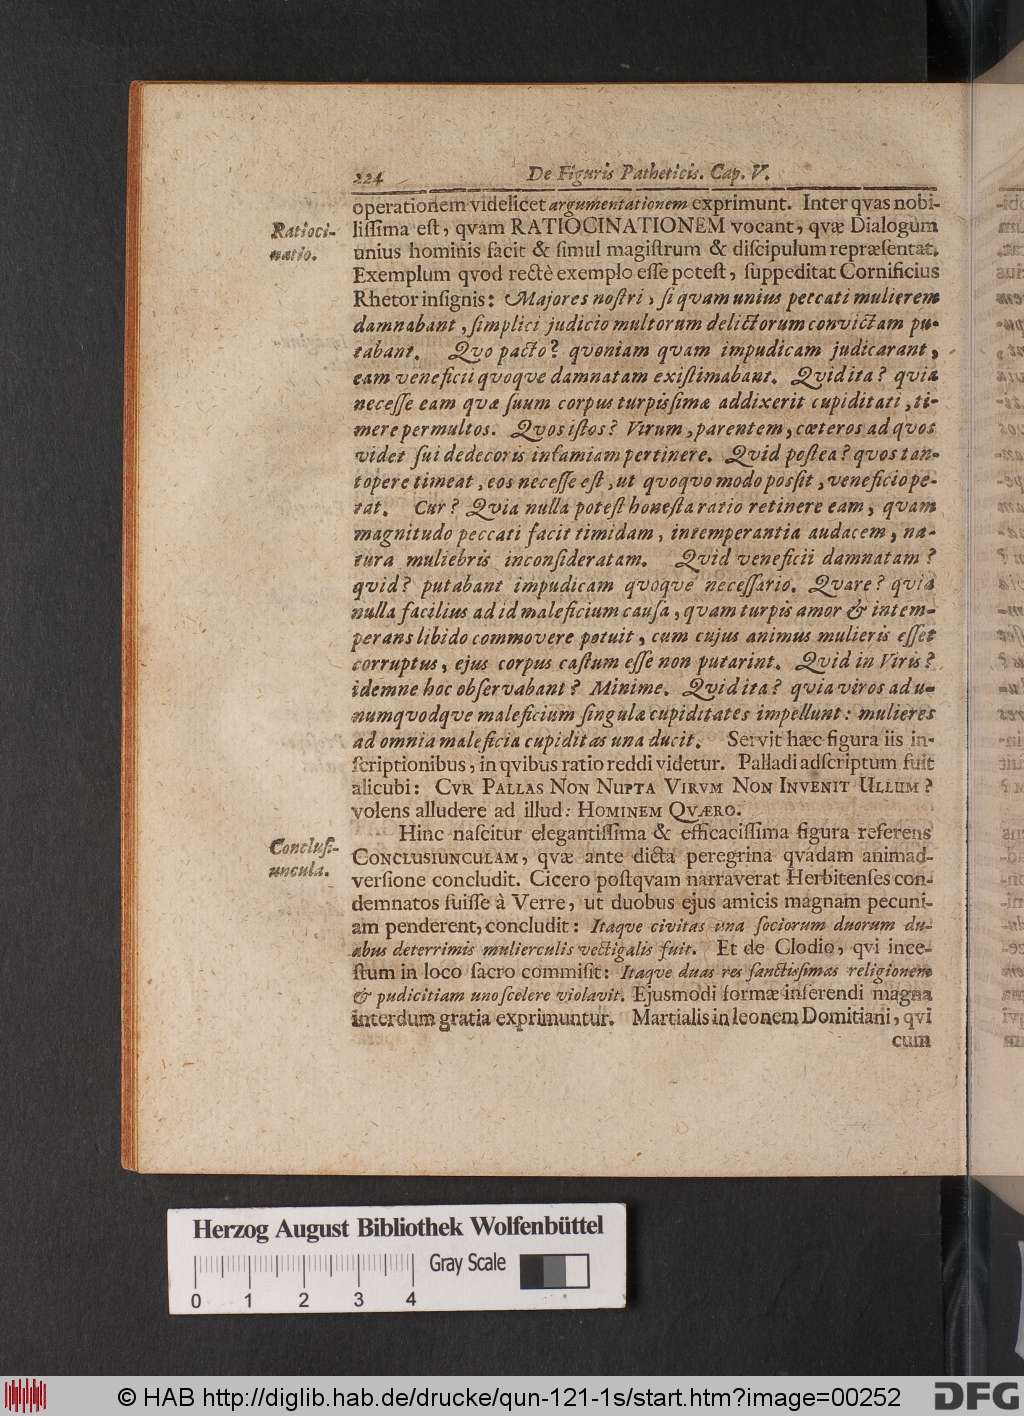 224 De Figuris Patheticis. Cap. V.
operationem videlicet argumentationem exprimunt. Inter qvas nobi-
Ratioci-
natio.
liſſima eſt, qvam RATIOCINATIONEM vocant, qvæ Dialogum
unius hominis facit & ſimul magiſtrum & diſcipulum repræſentat.
Exemplum qvod rectè exemplo eſſe poteſt, ſuppeditat Cornificius
Rhetor inſignis: Majores noſtri, ſi quam unius peccati mulierem
damnabant, ſimplici judicio multorum delictorum convictam pu-
tabant. Qvo pacto? qvoniam qvam impudicam judicarant,
eam veneficii qvoqve damnatam exiſtimabant. Qvid ita? qvia
neceſſe eam qvæ ſuum corpus turpiſſimæ addixerit cupiditati, ti-
mere permultos. Qvos iſtos? Virum, parentem, cæteros ad qvos
videt ſui dedecoris infamiam pertinere. Qvid poſtea? qvos tan-
topere timeat, eos neceſſe eſt, ut qvoqvo modo poſſit, veneficio pe-
tat. Cur? Qvia nulla poteſt honeſta ratio retinere eam, qvam
magnitudo peccati facit timidam, intemperantia audacem, na-
tura muliebris inconſideratam. Qvid veneficii damnatam?
qvid? putabant impudicam qvoqve neceſſario. Qvare? qvia
nulla facilius ad id maleficium cauſa, quam turpis amor & intem-
perans libido commovere potuit, cum cujus animus mulieris eſſet
corruptus, ejus corpus caſtum eſſe non putarint. Qvid in Viris?
idemne hoc obſervabant? Minime. Qvid ita? qvia viros ad u-
numqvodqve maleficium ſingulæ cupiditates impellunt: mulieres
ad omnia maleficia cupiditas una ducit. Servit hæc figura iis in-
ſcriptionibus, in qvibus ratio reddi videtur. Palladi adſcriptum fuit
alicubi: CVR PALLAS NON NUPTA VIRVM NON INVENIT ULLUM?
volens alludere ad illud: HOMINEM QVÆRO.
Hinc naſcitur elegantiſſima & efficaciſſima figura referens
Concluſi-
uncula.
CONCLUSIUNCULAM, qvæ ante dicta peregrina qvadam animad-
verſione concludit. Cicero poſtqvam narraverat Herbitenſes con-
demnatos fuiſſe à Verre, ut duobus ejus amicis magnam pecuni-
am penderent, concludit: Itaqve civitas una ſociorum duorum du-
abus deterrimis mulierculis vectigalis fuit. Et de Clodio, qvi ince-
ſtum in loco ſacro commiſit: Itaqve duas res ſanctiſſimas religionem
& pudicitiam uno ſcelere violavit. Ejusmodi formæ inferendi magna
interdum gratia exprimuntur. Martialis in leonem Domitiani, qvi
cum
Herzog August Bibliothek Wolfenbüttel
Gray Scale
0 1 2 3 4
© HAB http://diglib.hab.de/drucke/qun-121-1s/start.htm?image=00252
DFG